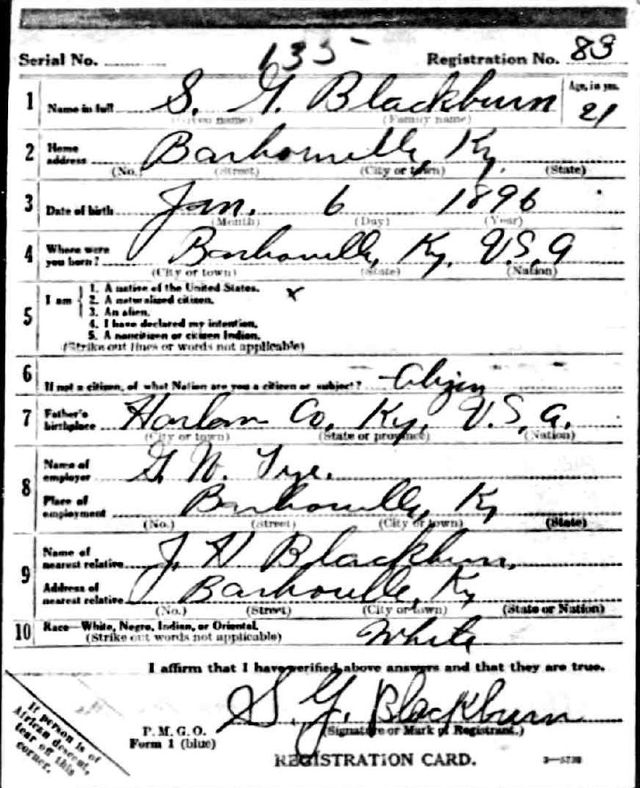 Serial No. 135 Registration No. 83
1 Name in full S. G. Blackburn Age, in yrs.
(Given name) (Family name) 21
2 Home address Barbourville, Ky.
(No.) (Street) (City or town) (State)
3 Date of birth Jan. 6 1896
(Month) (Day) (Year)
4 Where were you born? Barbourville, Ky. U.S.A
(City or town) (State) (Nation)
5 I am
1. A native of the United States. x
2. A naturalized citizen.
3. An alien.
4. I have declared my intention.
5. A noncitizen or citizen Indian.
(Strike out lines or words not applicable)
6 If not a citizen, of what Nation are you a citizen or subject? Citizen
7 Father's birthplace Harlan Co, Ky. U.S.A.
(City or town) (State or province) (Nation)
8 Name of employer G. W. Tye.
Place of employment Barbourville, Ky
(No.) (Street) (City or town) (State)
9 Name of nearest relative J. H Blackburn,
Address of nearest relative Barbourville, Ky
(No.) (Street) (City or town) (State or Nation)
10 Race—White, Negro, Indian, or Oriental. White
(Strike out words not applicable)
I affirm that I have verified above answers and that they are true.
S. G. Blackburn
(Signature or Mark of Registrant.)
P. M. G. O.
Form 1 (blue)
REGISTRATION CARD.
If person is of
African descent,
tear off this
corner.